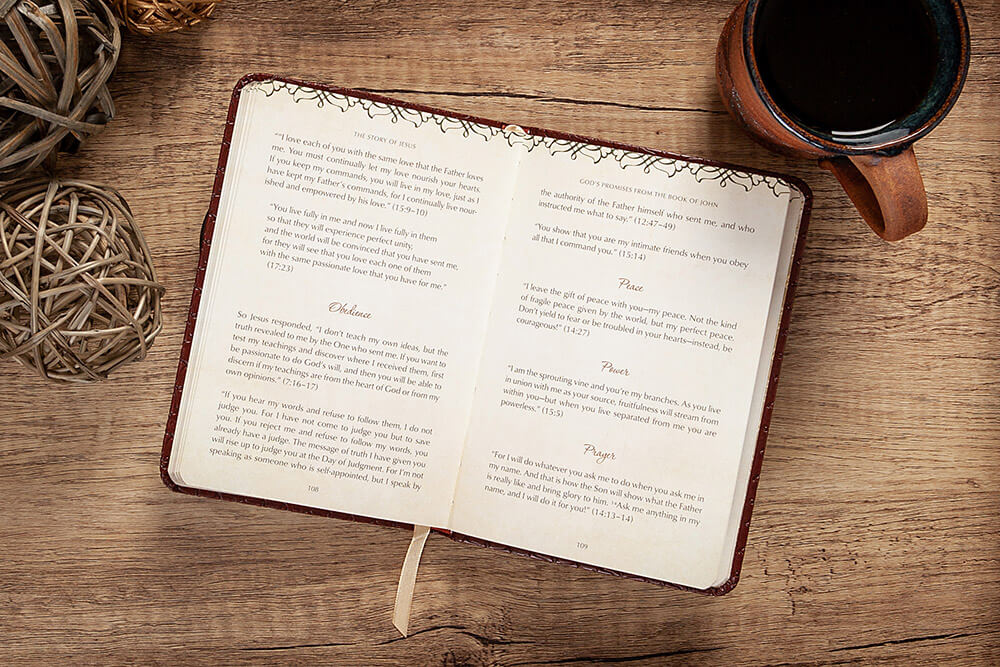 THE STORY OF JESUS
“‘“I love each of you with the same love that the Father loves
me. You must continually let my love nourish your hearts.
If you keep my commands, you will live in my love, just as I
have kept my Father’s commands, for I continually live nour-
ished and empowered by his love.” (15:9–10)
“You live fully in me and now I live fully in them
so that they will experience perfect unity,
and the world will be convinced that you have sent me,
for they will see that you love each one of them
with the same passionate love that you have for me.”
(17:23)
Obedience
So Jesus responded, “I don’t teach my own ideas, but the
truth revealed to me by the One who sent me. If you want to
test my teachings and discover where I received them, first
be passionate to do God’s will, and then you will be able to
discern if my teachings are from the heart of God or from my
own opinions.” (7:16–17)
“If you hear my words and refuse to follow them, I do not
judge you. For I have not come to judge you but to save
you. If you reject me and refuse to follow my words, you
already have a judge. The message of truth I have given you
will rise up to judge you at the Day of Judgment. For I’m not
speaking as someone who is self-appointed, but I speak by
108
GOD’S PROMISES FROM THE BOOK OF JOHN
the authority of the Father himself who sent me, and who
instructed me what to say.” (12:47–49)
“You show that you are my intimate friends when you obey
all that I command you.” (15:14)
Peace
“I leave the gift of peace with you—my peace. Not the kind
of fragile peace given by the world, but my perfect peace.
Don’t yield to fear or be troubled in your hearts—instead, be
courageous!” (14:27)
Power
“I am the sprouting vine and you’re my branches. As you live
in union with me as your source, fruitfulness will stream from
within you—but when you live separated from me you are
powerless.” (15:5)
Prayer
“For I will do whatever you ask me to do when you ask me in
my name. And that is how the Son will show what the Father
is really like and bring glory to him. ¹⁴Ask me anything in my
name, and I will do it for you!” (14:13–14)
109